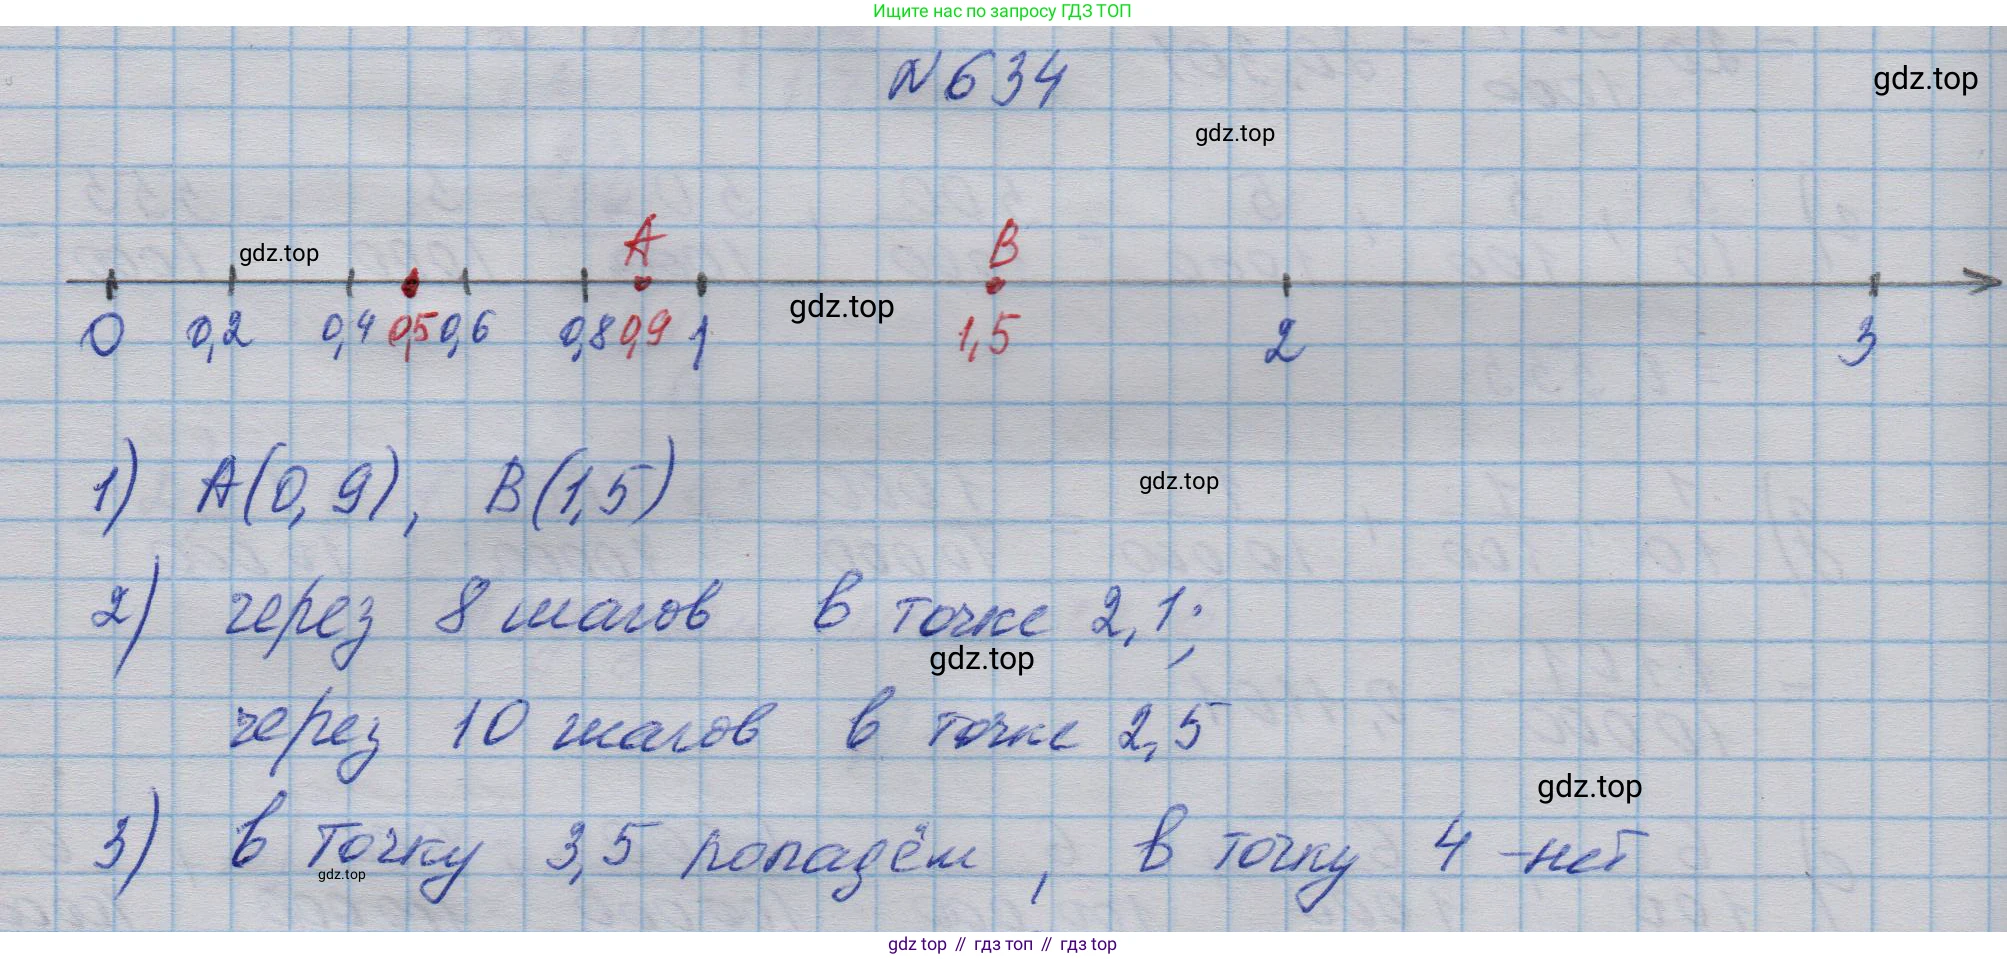 Ищите нас по запросу ГДЗ ТОП
№634
gdz.top
gdz.top
gdz.top
A
B
gdz.top
0 0,2 0,4 0,5 0,6 0,8 0,9 1 1,5 2 3
1) A(0,9), B(1,5)
gdz.top
2) через 8 шагов в точке 2,1;
gdz.top
через 10 шагов в точке 2,5
gdz.top
3) в точку 3,5 попадём, в точку 4 -нет
gdz.top
gdz top // гдз топ // гдз top